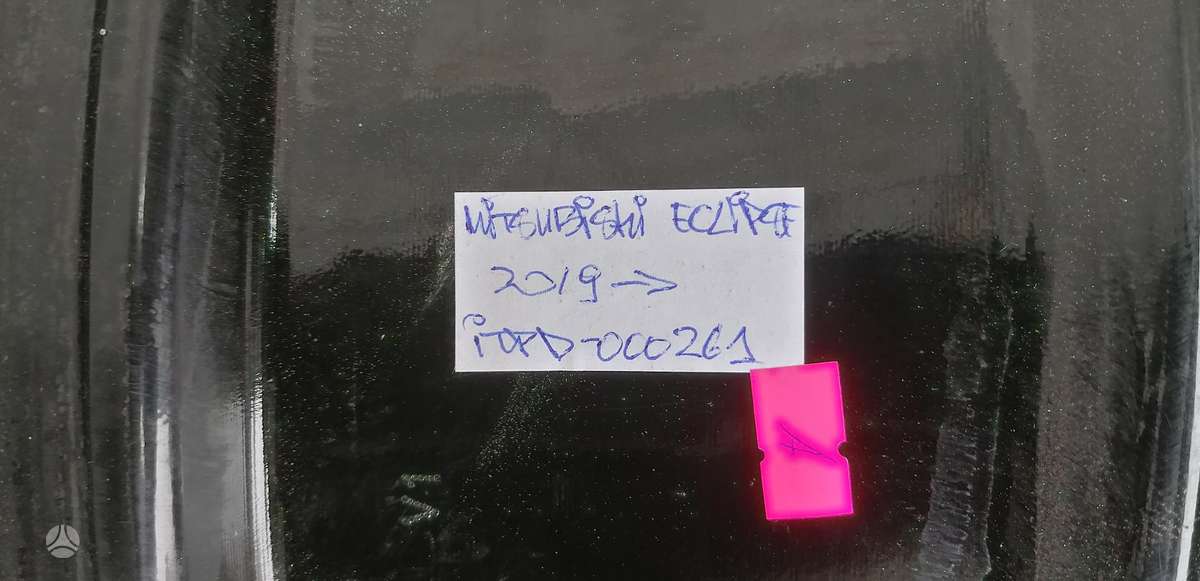 MITSUBISHI ECLIPSE
2019 →
iTPD-000261